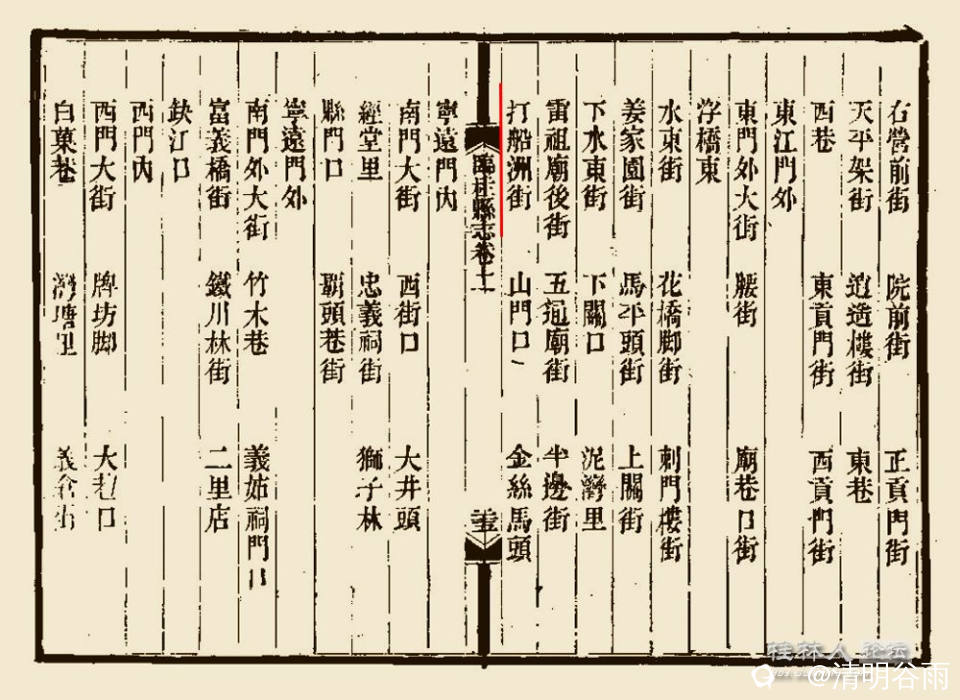 右營前街 院前街 正貢門街
天平架街 逍遙樓街 東巷
西巷 東貢門街 西貢門街
東江門外
東門外大街 腰街 廟巷口街
浮橋東
水東街 花橋脚街 刺門樓街
姜家園街 馬平頭街 上關街
下水東街 下關口 泥灣里
雷祖廟後街 五通廟街 半邊街
打船洲街 山門口 金絲馬頭
臨桂縣志卷十
寧遠門內
南門大街 西街口 大井頭
經堂里 忠義祠街 獅子林
縣門口 霸頭巷街
寧遠門外
南門外大街 竹木巷 義姑祠門口
富義橋街 鐵川林街 二里店
鈌江口
西門內
西門大街 牌坊脚 大巷口
白菓巷 灣塘里 義倉街
桂林人论坛
@清明谷雨